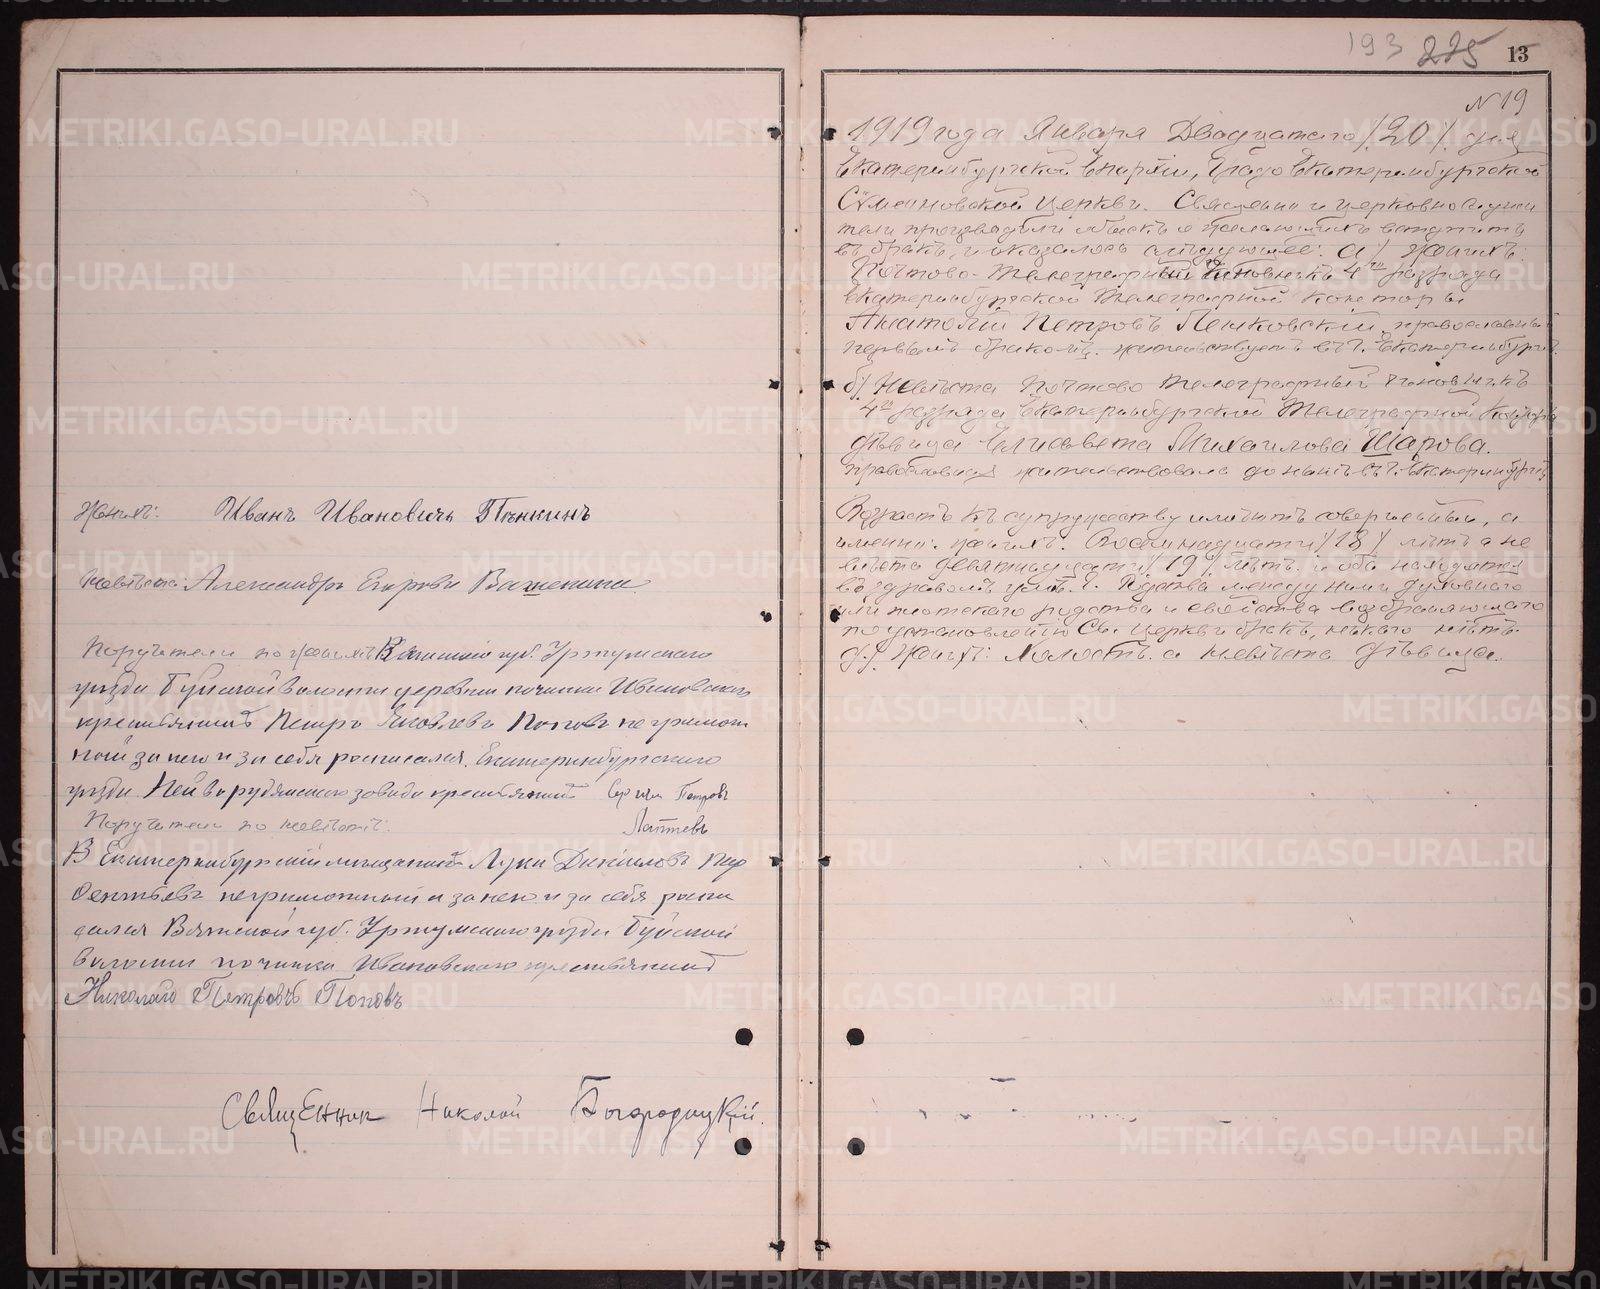 Женихъ: Иванъ Ивановичъ Пѣнкинъ
Невѣста: Александра
Поручители по женихѣ Вятской губ. Уржумскаго
уѣзда Буйской волости деревни починка Ивановскаго
крестьянинъ Петръ Яковлевъ Поповъ неграмот
ный за него и за себя расписался. Екатеринбургскаго
уѣзда завода крестьянинъ Сергѣй Петровъ
Лаптевъ
Поручители по невѣстѣ:
Екатеринбургскій мѣщанинъ Лука Даниловъ
неграмотный и за него и за себя распи
сался Вятской губ. Уржумскаго уѣзда Буйской
волости починка Ивановскаго крестьянинъ
Николай Петровъ Поповъ
Священник Николай Богородицкій.
193 225 13
№ 19
1919 года Января Двадцатаго /20/ дня
Екатеринбургской Епархіи, Градо Екатеринбургской
Симеоновской церкви. Священно и церковнослужи
тели производили обыскъ о желающихъ вступить
въ бракъ, и оказалось слѣдующее: а/ Женихъ:
Почтово-Телеграфный Чиновникъ 4го разряда
Екатеринбургской Телеграфной Конторы
Анатолій Петровъ Пеньковскій, православный
первымъ бракомъ. жительствуетъ въ г. Екатеринбургѣ.
б/. Невѣста Почтово Телеграфный чиновникъ
4го разряда Екатеринбургской Телеграфной Конторы
дѣвица Елисавета Михаилова Шарова.
православная жительствовала до нынѣ въ г. Екатеринбургѣ
Возрастъ къ супружеству имѣютъ совершенный, а
именно: женихъ. Восемнадцати /18/ лѣтъ а не
вѣста девятнадцати /19/ лѣтъ. и оба находятся
въ здравомъ умѣ. Родства между ними духовнаго
или плотскаго родства и свойства возбраняющаго
по установленію Св. Церкви бракъ, никакого нѣтъ.
Женихъ: Холостъ. а невѣста дѣвица.
METRIKI.GASO-URAL.RU